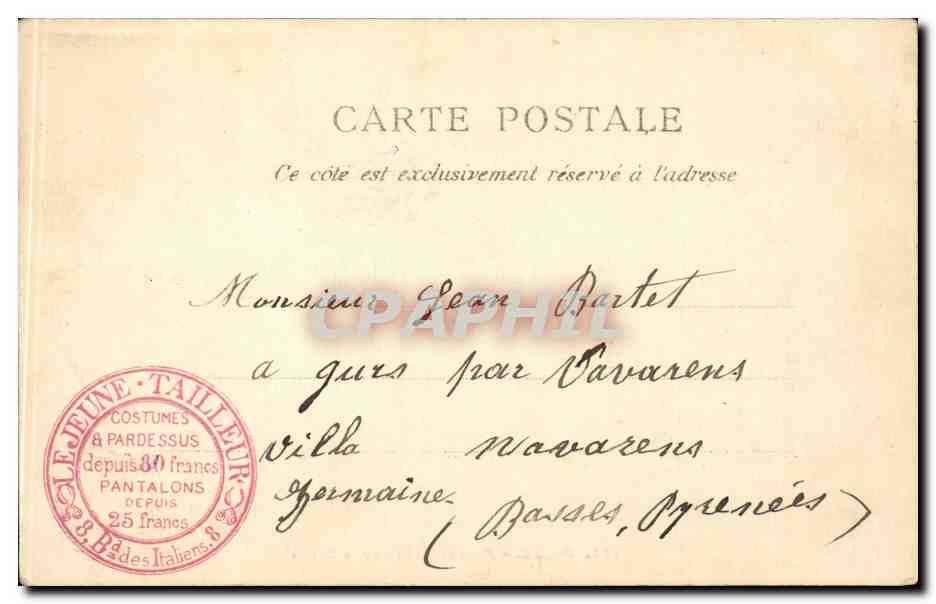 CARTE POSTALE
Ce côté est exclusivement réservé à l'adresse
Monsieur Jean Bartet
CPAPHIL
a gurs par Navarens
Villa Navarens
Germaine
(Basses, Pyrenées)
LEJEUNE · TAILLEUR
COSTUMES
& PARDESSUS
depuis 80 francs
PANTALONS
DEPUIS
25 francs
8, Bd des Italiens, 8